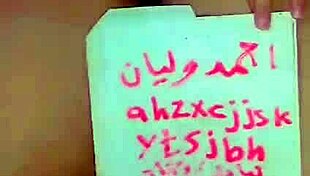 احمد وليان
ahzxcjjsk
ytsjbh